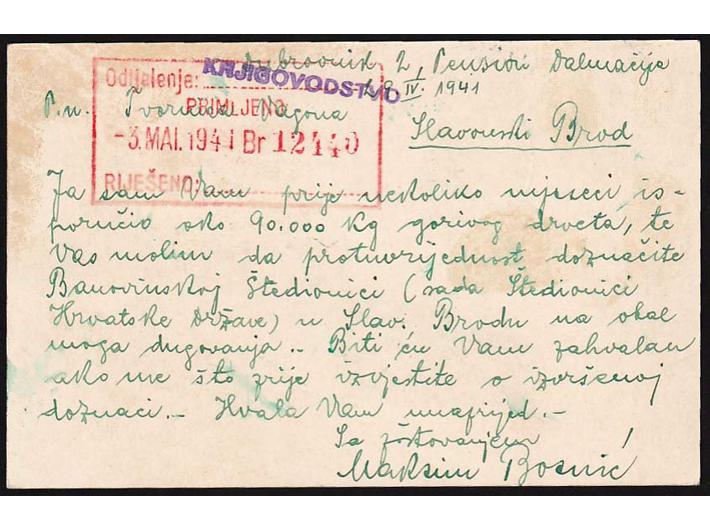 Dubrovnik 2, Pension Dalmacija
28 IV. 1941
Odjelenje: KNJIGOVODSTVO
P.n. Tvornica Vagona
PRIMLJENO
-3.MAI.1941 Br 12440
Slavonski Brod
RIJEŠENO:
Ja sam Vam prije nekoliko mjeseci is-
poručio oko 90.000 kg gorivog drveta, te
Vas molim da protuvrijednost doznačite
Banovinskoj Štedionici (sada Štedionici
Hrvatske Države) u Slav. Brodu na
moga dugovanja.- Biti ću Vam zahvalan
ako me što prije izvjestite o izvršenoj
doznaci.- Hvala Vam unaprijed.-
Sa poštovanjem
Maksim Bosnić